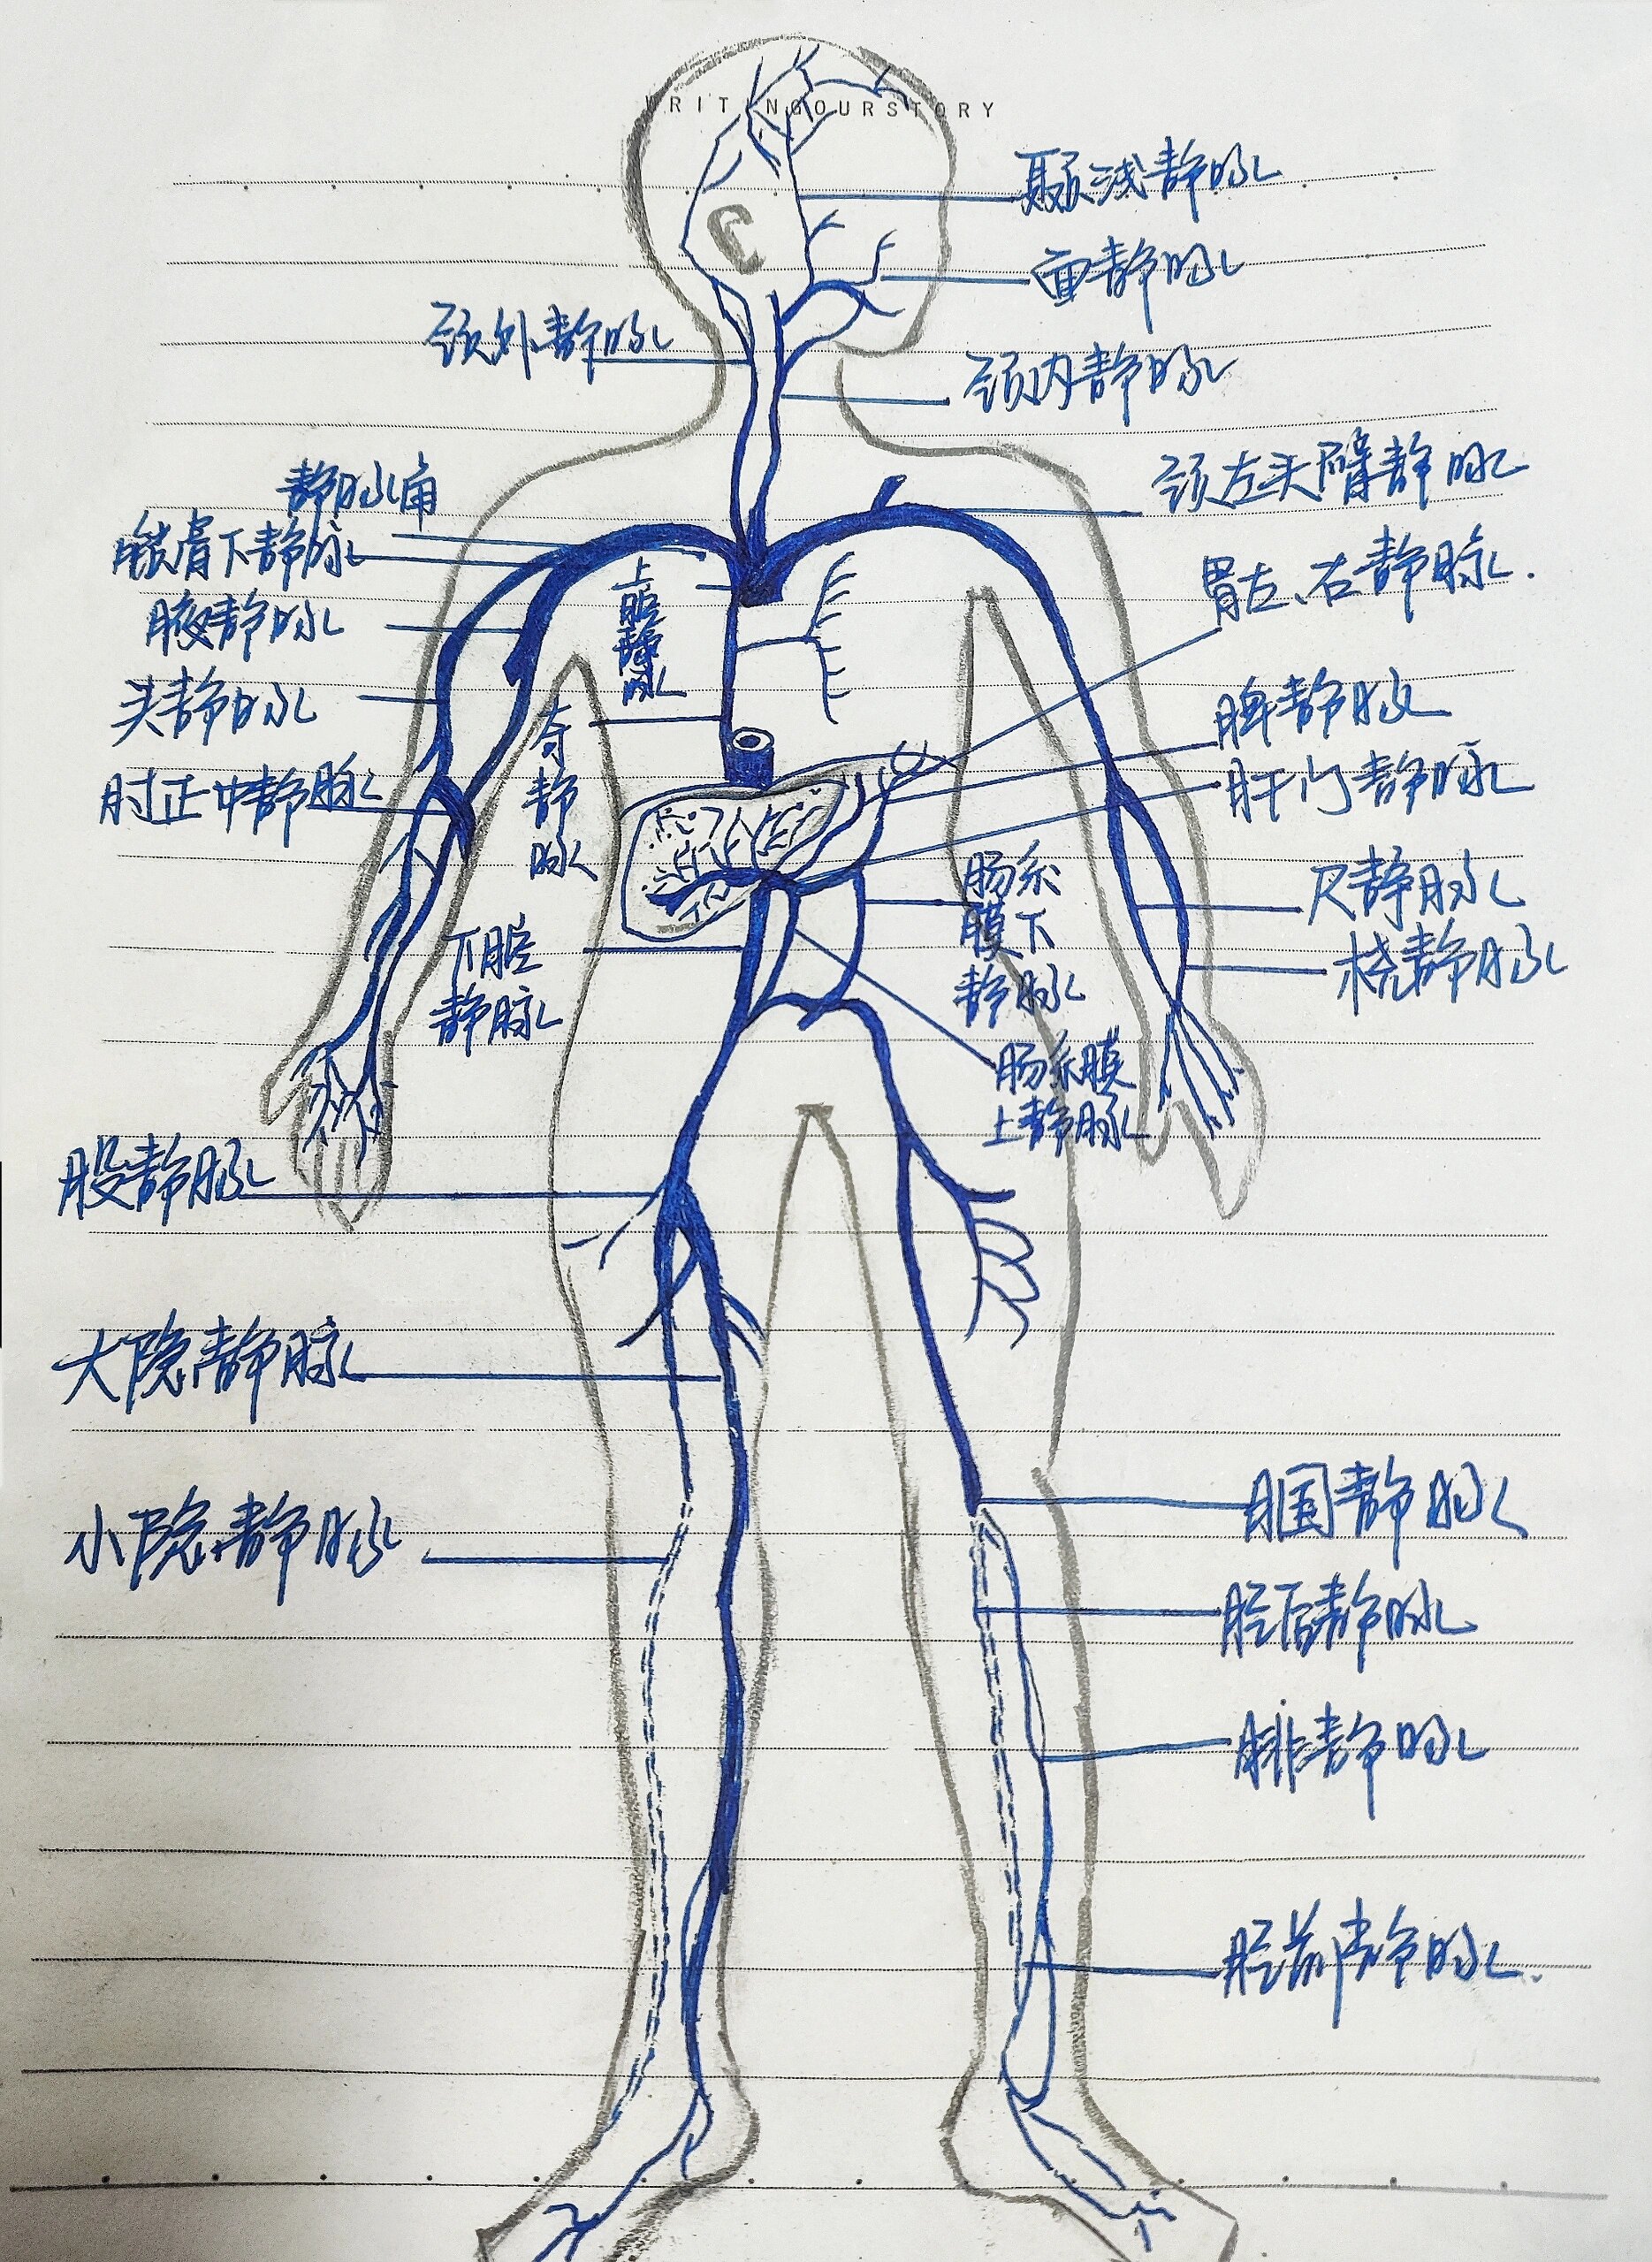 WRITINGOURSTORY
颞浅静脉
面静脉
颈外静脉
颈内静脉
静脉角
颈左头臂静脉
锁骨下静脉
上腔静脉
胃左、右静脉.
腋静脉
头静脉
奇静脉
脾静脉
肘正中静脉
肝门静脉
肠系膜下静脉
尺静脉
下腔静脉
桡静脉
肠系膜上静脉
股静脉
大隐静脉
腘静脉
小隐静脉
胫后静脉
腓静脉
胫前静脉.